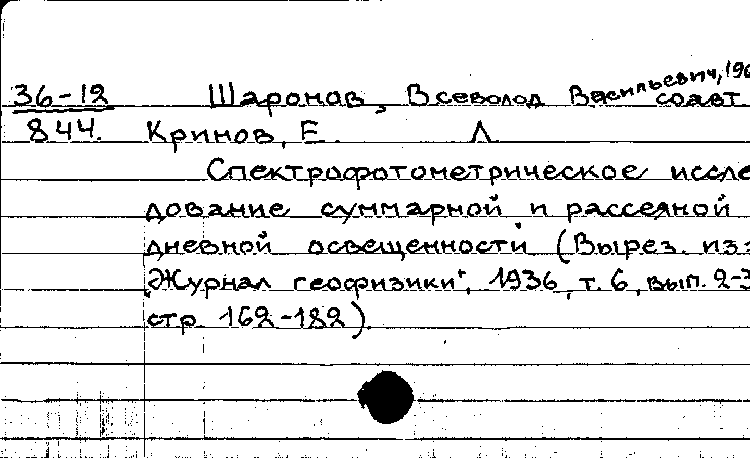 36-12 Шаронов, Всеволод Васильевич, 190
844. Кринов, Е. соавт
Спектрофотометрическое иссле
дование суммарной и рассеяной
дневной освещенности (Вырез. из:
"Журнал геофизики", 1936, т. 6, вып. 2-3
стр. 162-182).